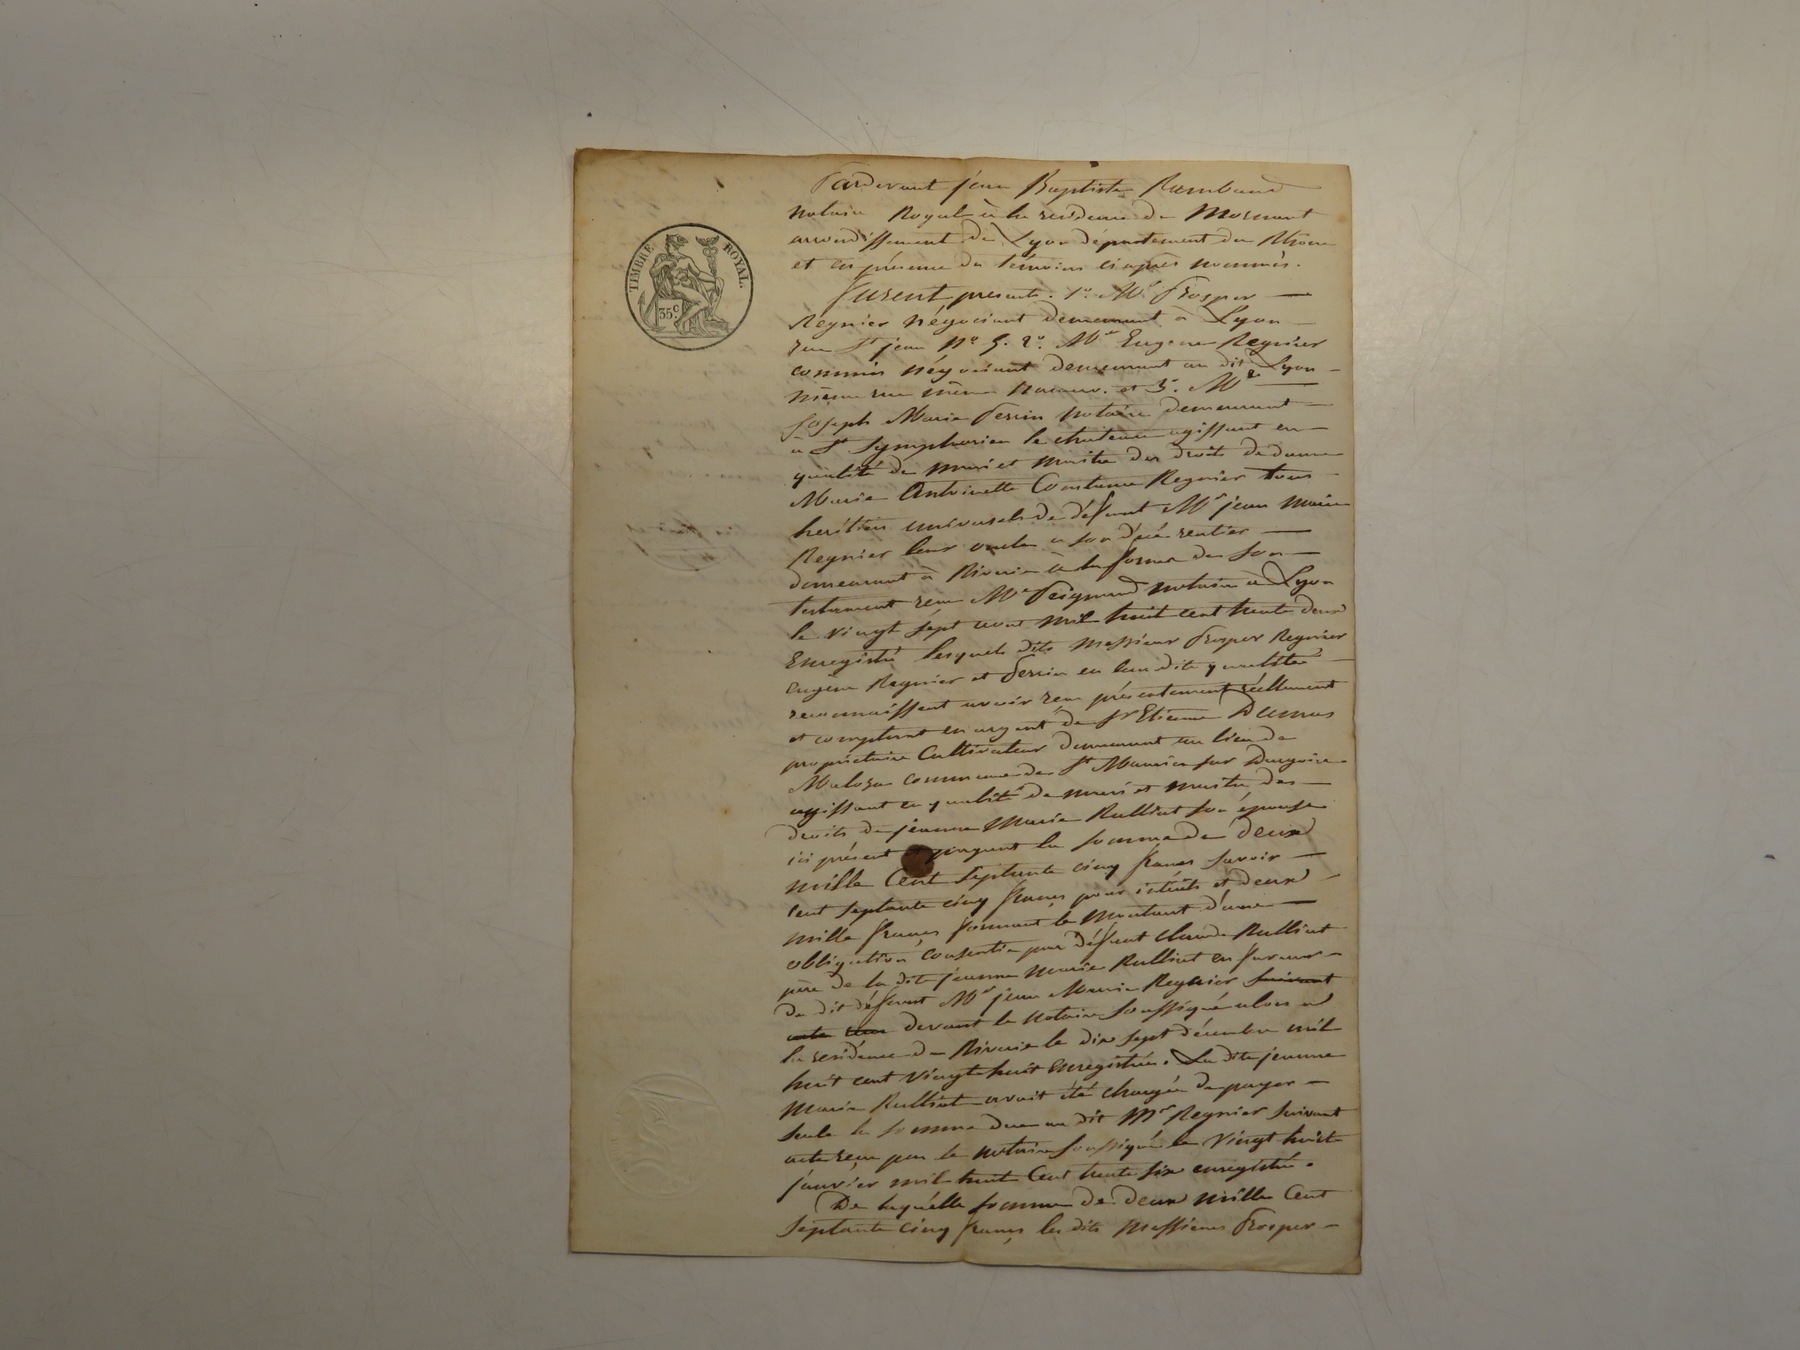 TIMBRE ROYAL.
35c.
Pardevant jean Baptiste Rambaud
notaire Royal à la residence de Mornant
arrondissement de Lyon département du Rhône
et en présence des témoins ciaprès nommés.
furent présents. 1º. Mr. Prosper
Reynier négociant demeurant à Lyon
rue St jean Nº 5. 2º. Mr Eugene Reynier
commis négociant demeurant au dit Lyon
même rue même numero. et 3º. Me
Joseph Marie Perrin notaire demeurant
à St Symphorien le chateau agissant en
qualité de mari et maitre des droits de dame
Marie Antoinette Constance Reynier tous
heritiers universels de défunt Mr jean Marie
Reynier leur oncle a son décé rentier
demeurant à Riverie à la forme de son
testament reçu Me Peignaud notaire à Lyon
le vingt sept aout mil huit cent trente deux
Enregistré lesquels dits messieurs Prosper Reynier
eugène Reynier et Perrin en leur dite qualité
reconnaissent avoir reçu présentement réellement
et comptant en argent de Sr Etienne Dumas
propriétaire Cultivateur demeurant au lieu de
commune de St Maurice sur Dargoire
agissant en qualité de mari et maitre des
droits de jeanne Marie Rulliat son épouse
ici présent et payant la somme de deux
mille Cent septante cinq francs savoir
cent septante cinq francs pour intérêts et deux
mille francs formant le montant d'une
obligation consentie par défunt claude Rulliat
père de la dite jeanne marie Rulliat en faveur
du dit défunt Mr jean Marie Reynier suivant
acte reçu devant le notaire soussigné alors à
la residence de Riverie le dix sept décembre mil
huit cent vingt huit Enregistrée. La dite jeanne
Marie Rulliat avait été chargée de payer
seule la somme due au dit Mr Reynier suivant
acte reçu par le notaire soussigné le vingt huit
janvier mil huit Cent trente six enregistré.
De laquelle somme de deux mille Cent
septante cinq francs les dits Messieurs Prosper